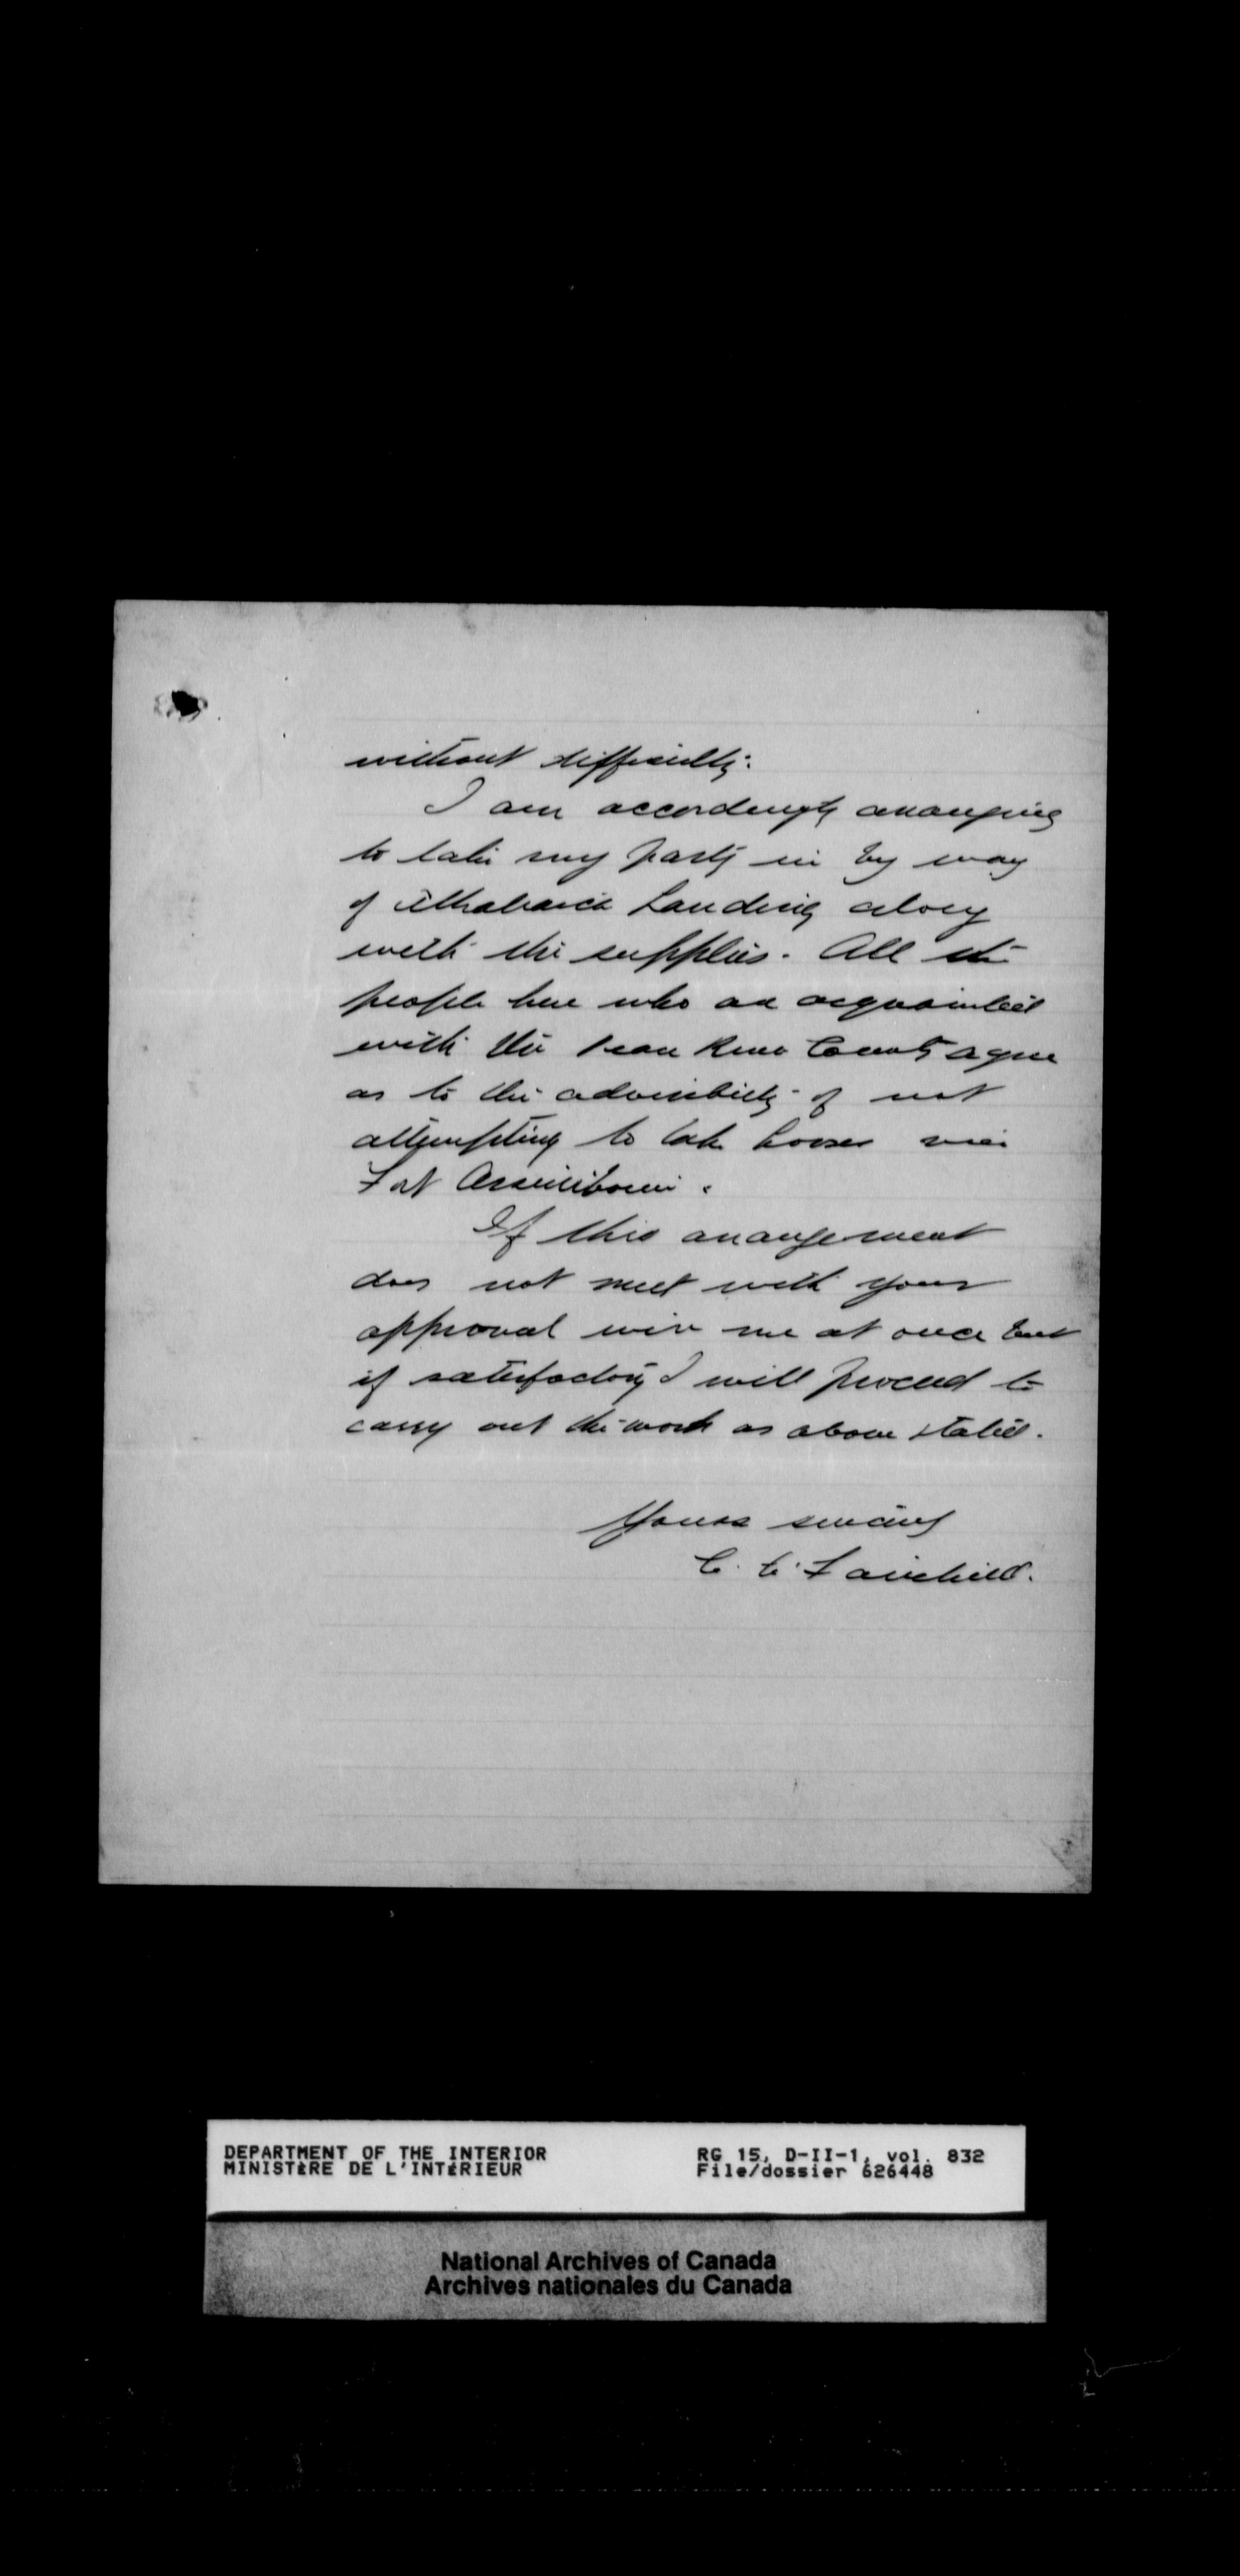 without difficulty.
I am accordingly arranging
to take my party in by way
of Athabasca Landing along
with the supplies. All the
people here who are acquainted
with the Peace River Country agree
as to the advisibility of not
attempting to take horses via
Fort Assiniboine.
If this arrangement
does not meet with your
approval wire me at once but
if satisfactory I will proceed to
carry out the work as above stated.
Yours sincerely
C. C. Fairchild.
DEPARTMENT OF THE INTERIOR
MINISTÈRE DE L'INTÉRIEUR
RG 15, D-II-1, vol. 832
File/dossier 626448
National Archives of Canada
Archives nationales du Canada